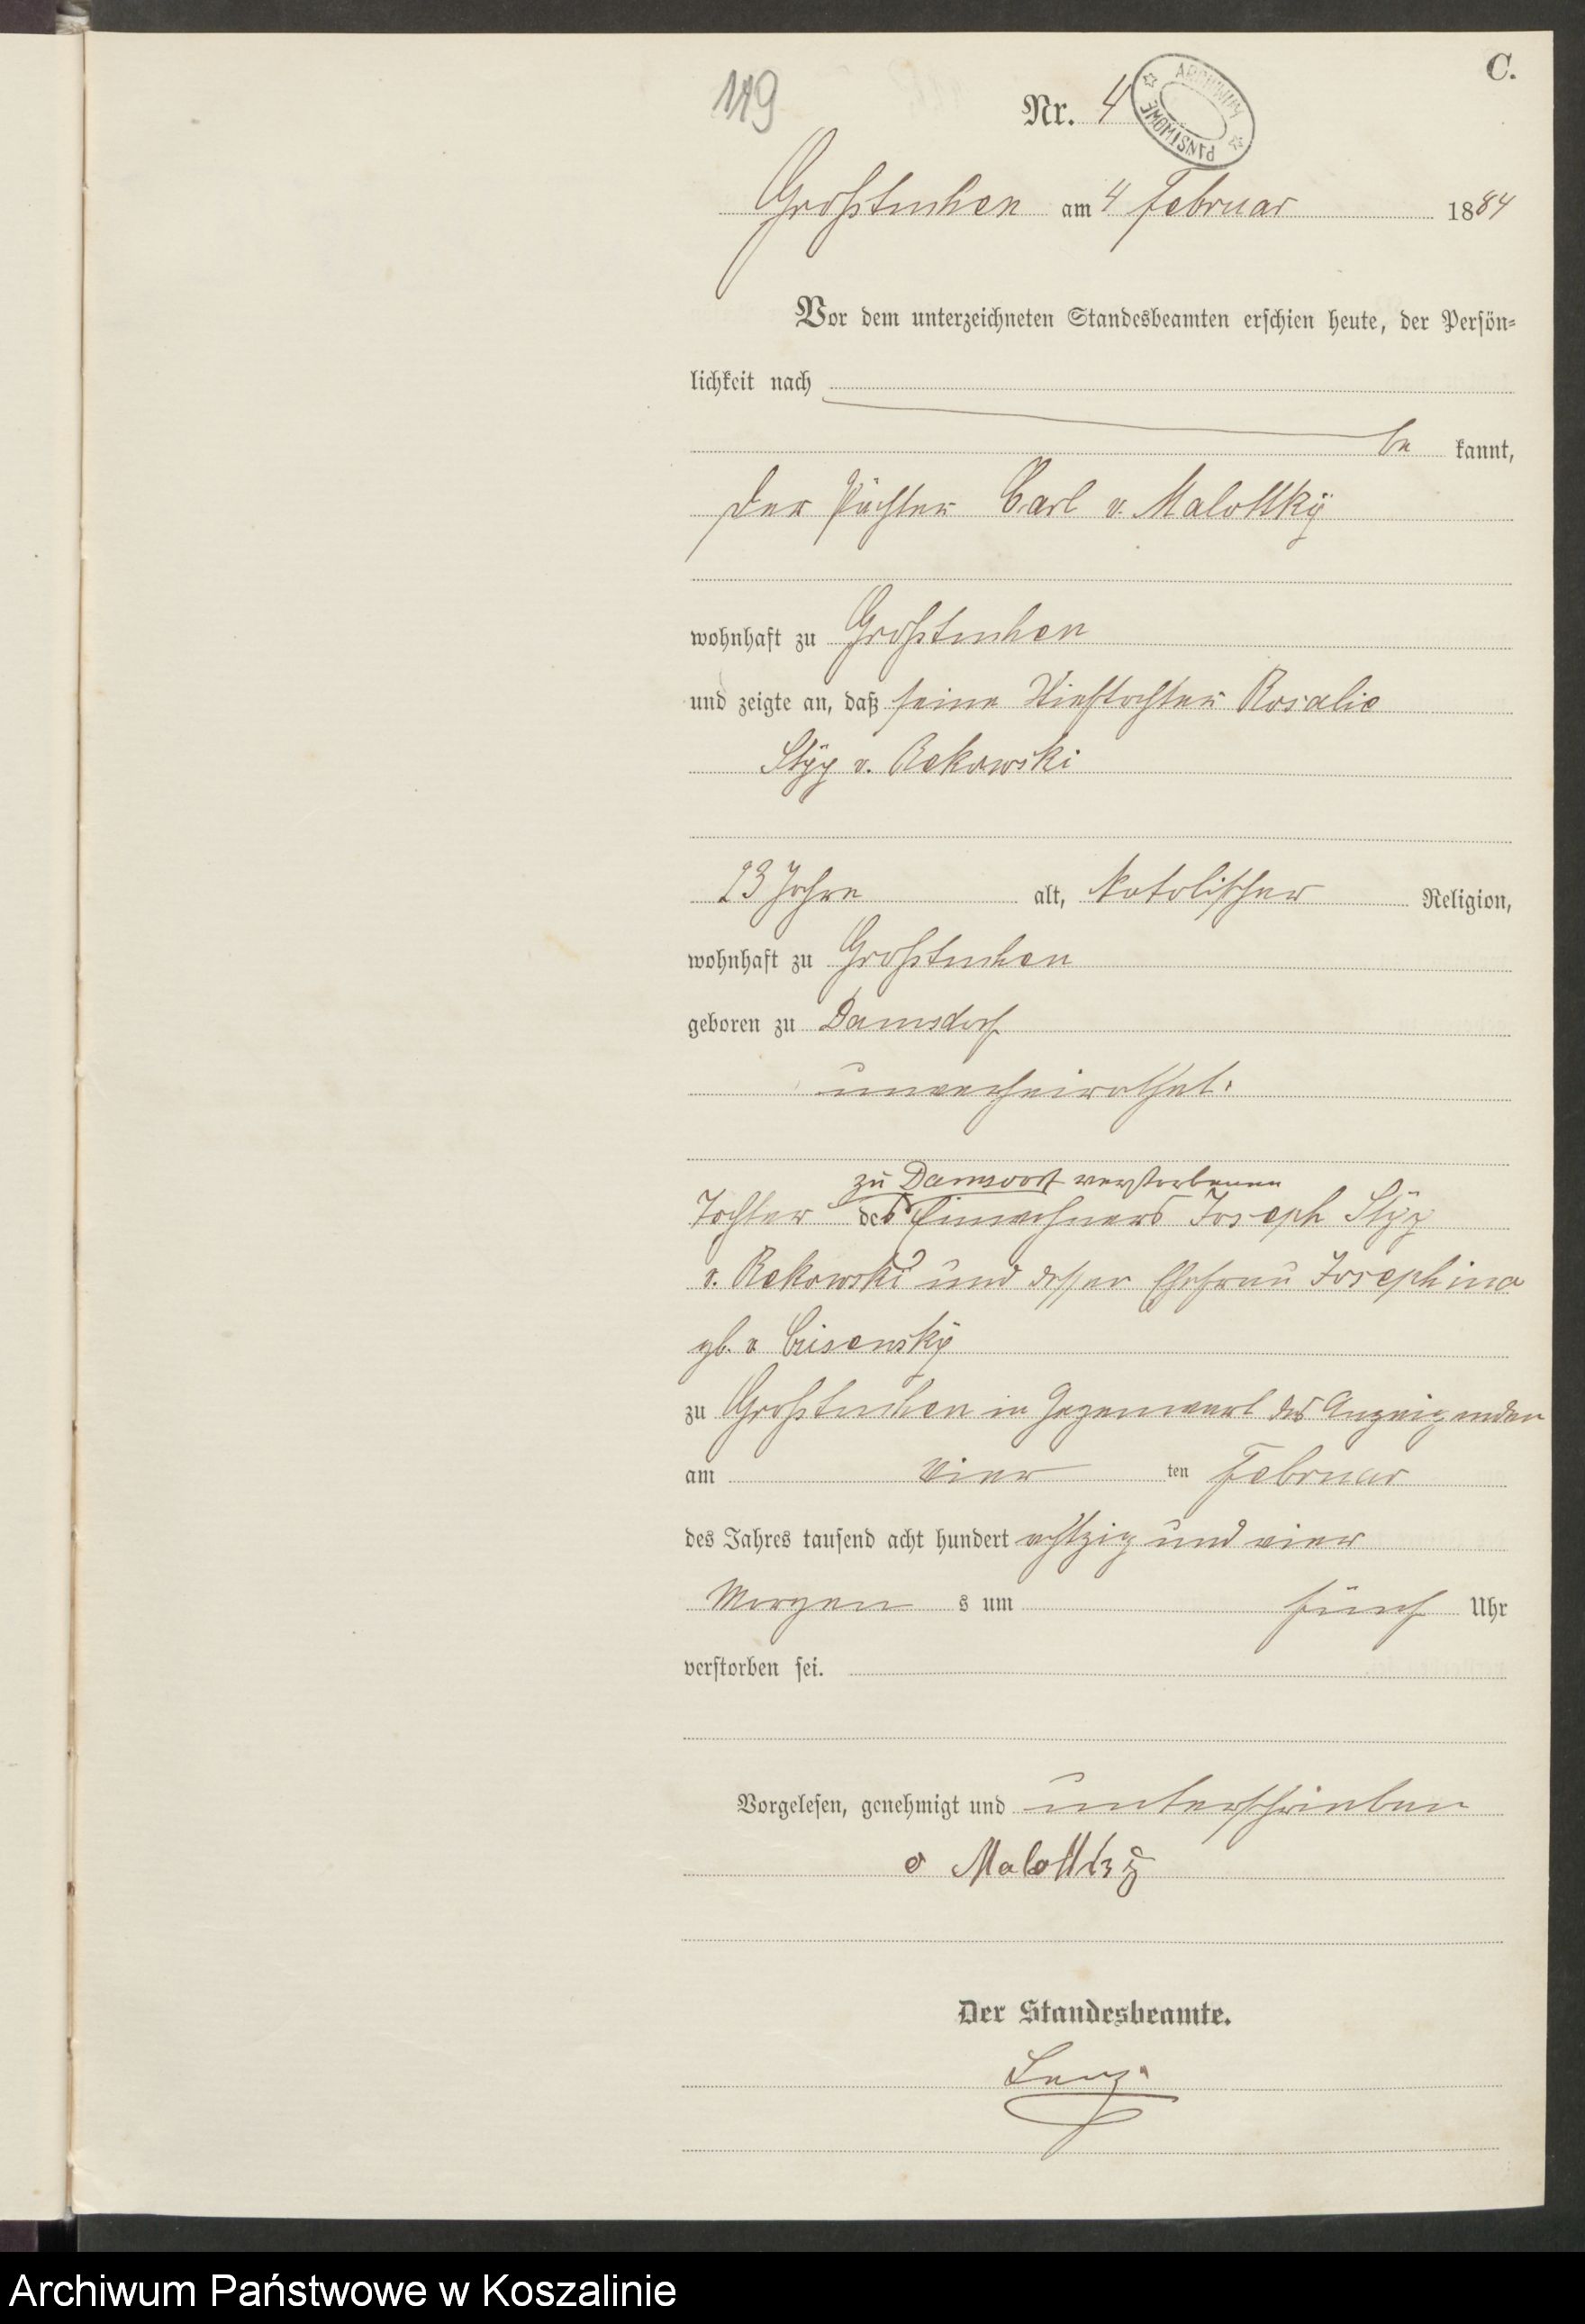 C.
119
Nr. 4
ARCHIWUM PAŃSTWOWE
Großtuchen am 4 Februar 1884
Vor dem unterzeichneten Standesbeamten erschien heute, der Persön-
lichkeit nach
be kannt,
der Pächter Carl v. Malottkÿ
wohnhaft zu Großtuchen
und zeigte an, daß seine Stieftochter Rosalie
Stÿp v. Rekowski
23 Jahre alt, katolischer Religion,
wohnhaft zu Großtuchen
geboren zu Damsdorf
unverheirathet.
zu Damsdorf verstorbenen
Tochter des Einwohners Joseph Stÿp
v. Rekowski und dessen Ehefrau Josephina
gb. v
zu Großtuchen in Gegenwart des Anzeigenden
am vier ten Februar
des Jahres tausend acht hundert achtzig und vier
Morgen s um fünf Uhr
verstorben sei.
Vorgelesen, genehmigt und unterschrieben
v Malottkÿ
Der Standesbeamte.
Lenz
Archiwum Państwowe w Koszalinie